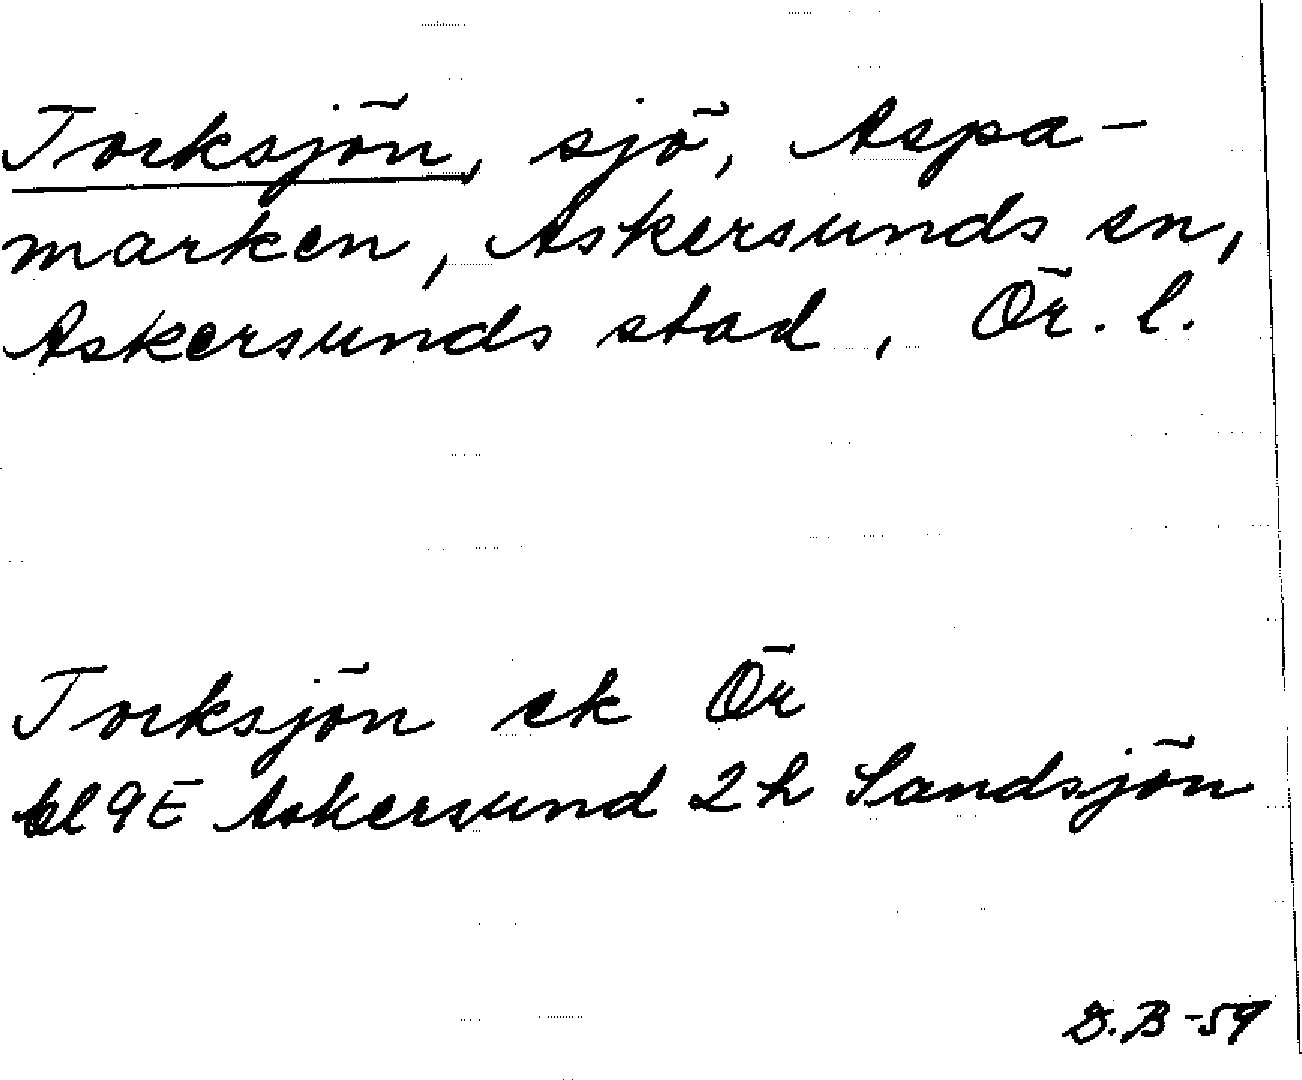 Torksjön, sjö, Aspa-
marken, Askersunds sn,
Askersunds stad, Ör. l.
Torksjön ek Ör
bl 9E Askersund 2h Sandsjön
D.B-59